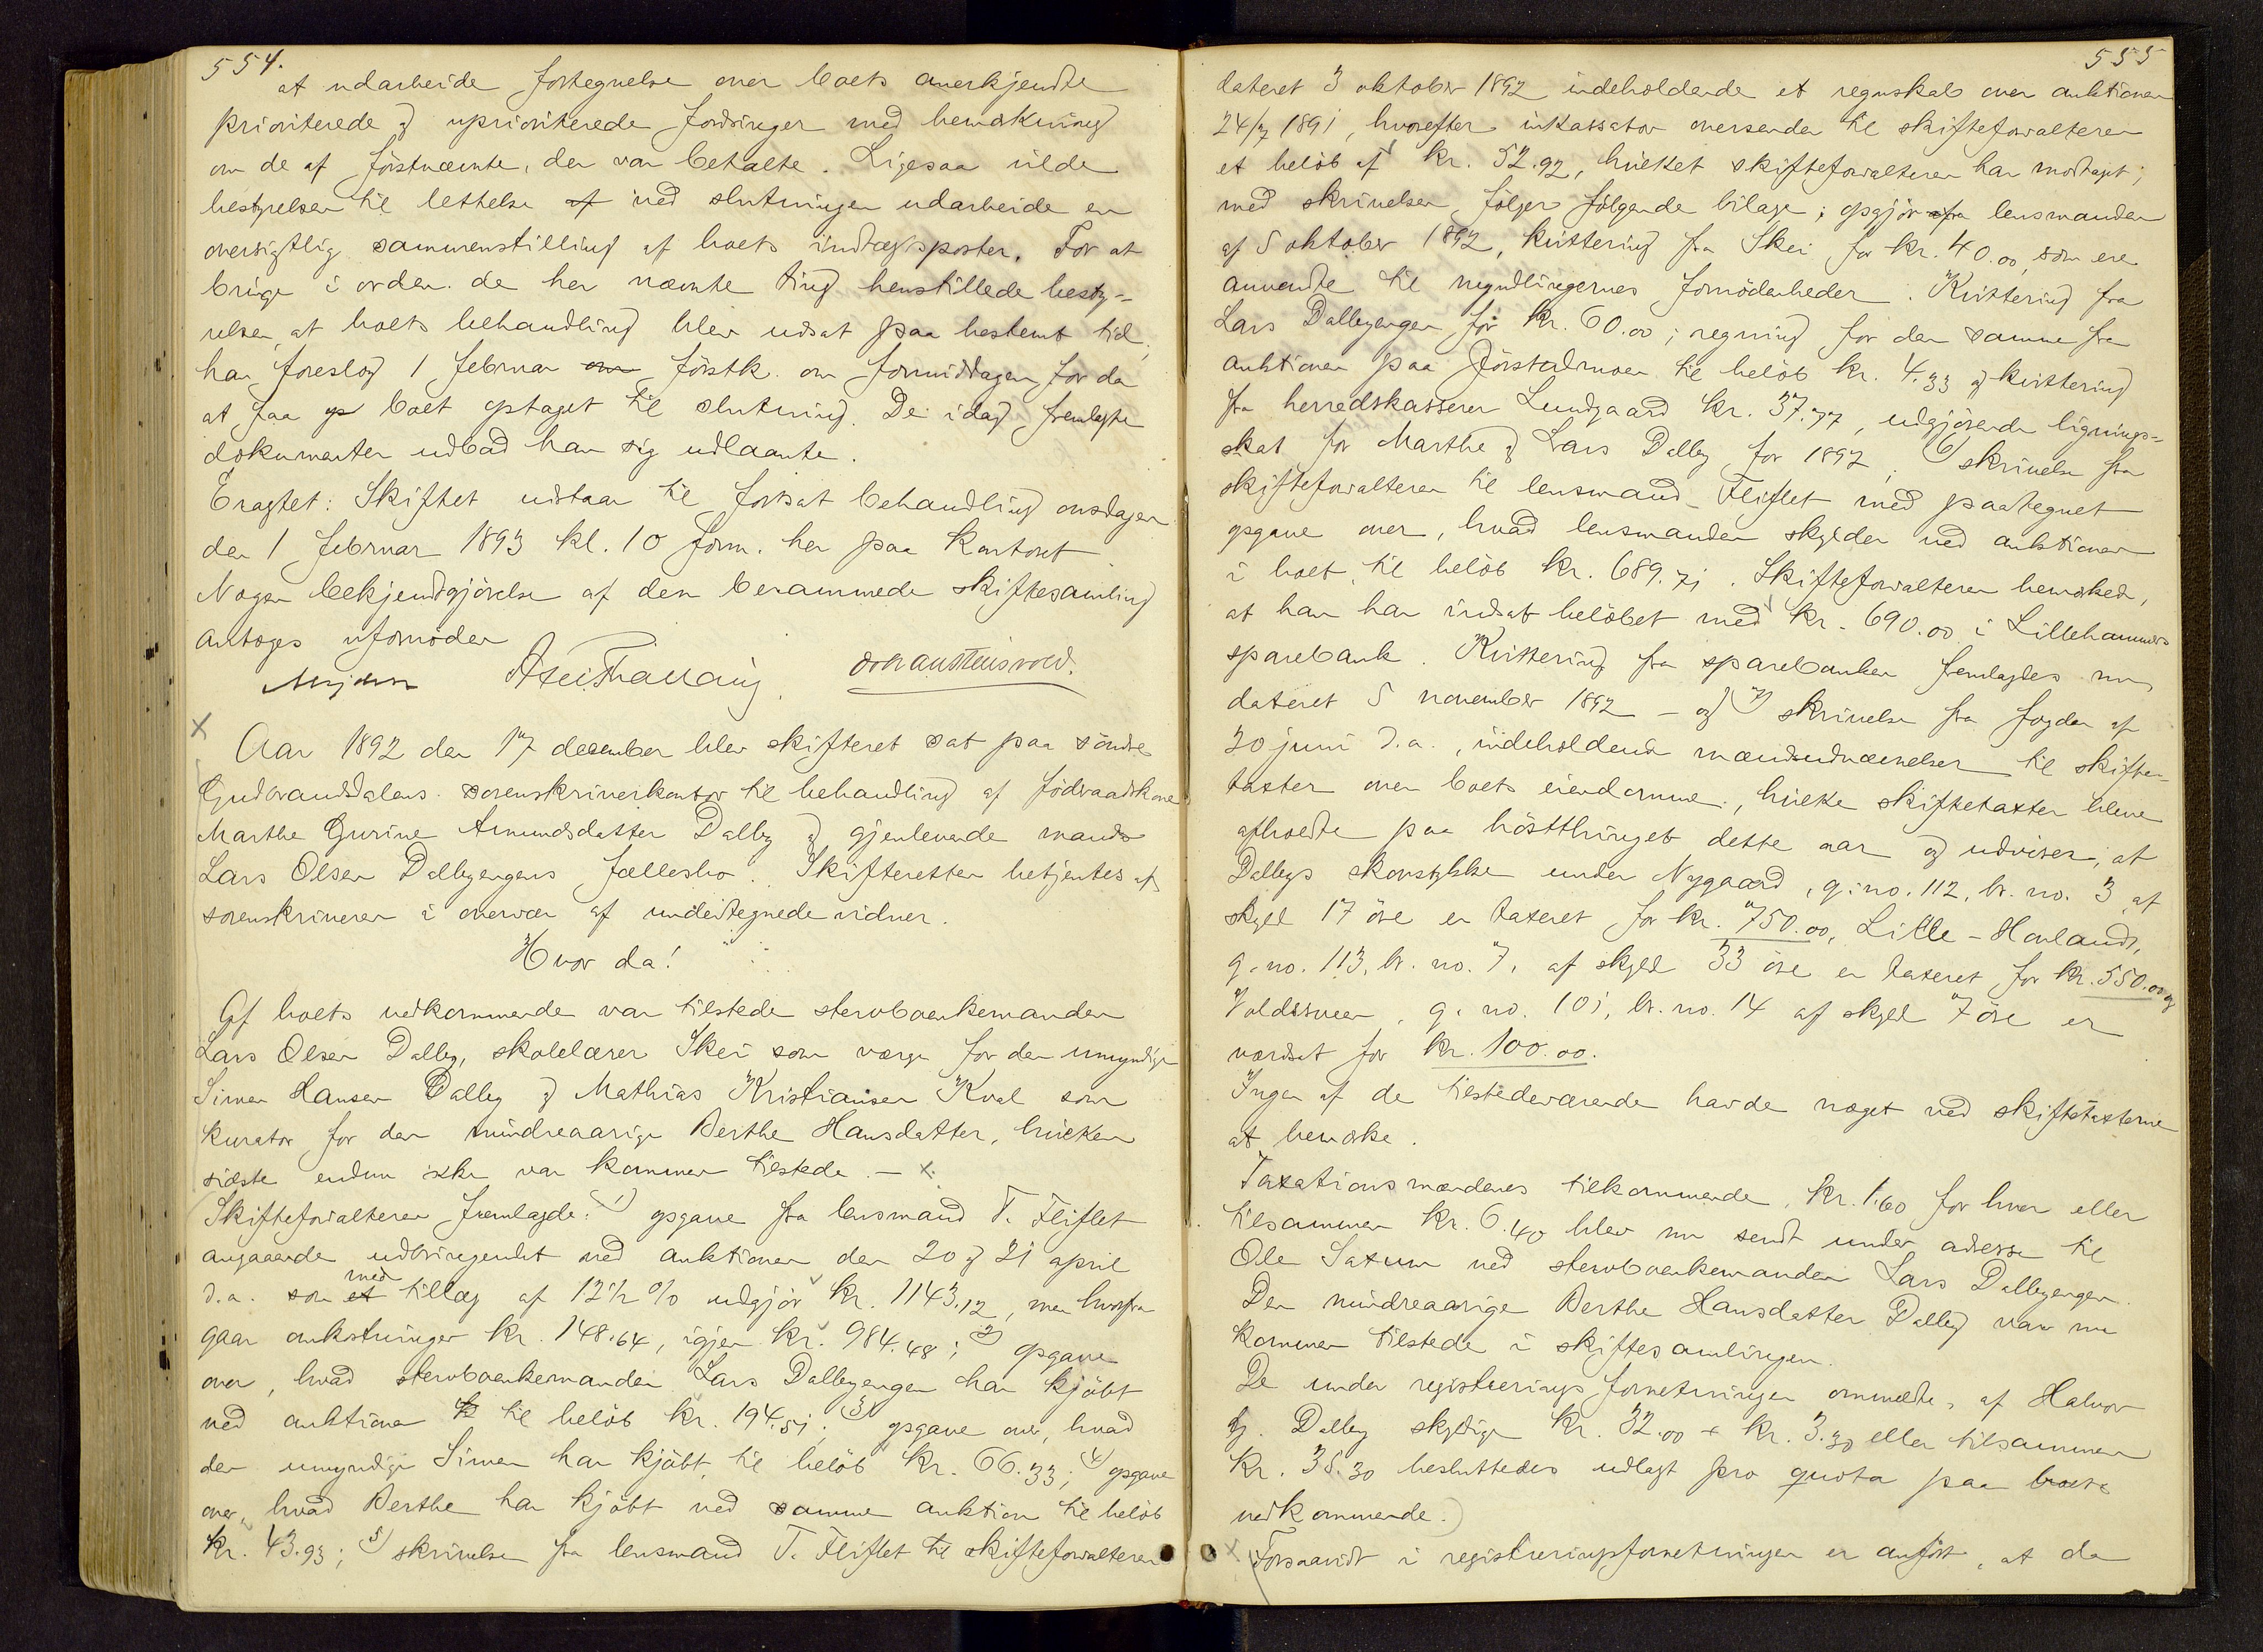 554.
at udarbeide fortegnelse over boets anerkjendte
prioriterede og uprioriterede fordringer med bemærkning
om de af förstnævnte, der var betalte. Ligesaa vilde
bestyrelsen til lettelse af ved slutningen udarbeide en
oversigtlig sammenstilling af boets indtægtsposter. For at
bringe i orden de her nævnte ting henstillede besty-
relsen, at boets behandling blev udsat paa bestemt tid;
han foreslog 1 februar om förstk. om formiddagen for da
at faa op boet optaget til slutning. De idag fremlagte
dokumenter udbad han sig udlaante.
Eragtet: Skiftet udstaar til fortsat behandling onsdagen
den 1 februar 1893 kl. 10 form. her paa kontoret
Nogen bekjendtgjörelse af den berammede skiftesamling
antoges ufornöden
Axel Thallaug. Johan Steinsvold.
X
Aar 1892 den 17 december blev skifteret sat paa söndre
Gudbrandsdalens sorenskriverkontor til behandling af födraadskone
Marthe Gurine Amundsdatter Dalby og gjenlevende mands
Lars Olsen Dalbyengens fællesbo. Skifteretten betjentes af
sorenskriveren i overvær af undertegnede vidner.
Hvor da!
Af boets vedkommende var tilstede stervboenkemanden
Lars Olsen Dalby, skolelærer Skei som værge for den umyndige
Simen Hansen Dalby og Mathias Kristiansen Kval som
kurator for den mindreaarige Berthe Hansdatter, hvilken
sidste endnu ikke var kommen tilstede. – x.
Skifteforvalteren fremlagde: 1) opgave fra lensmand T. Fliflet
angaaende udbringendet ved auktionen den 20 og 21 april
d.a. som et med tillæg af 12 1/2 % udgjör kr. 1143.12, men hvorfra
gaar omkostninger kr. 148.64, igjen kr. 984.48; 2) opgave
over, hvad stervboenkemanden Lars Dalbyengen har kjöbt
ved auktionen til til belöb kr. 194.51; 3) opgave over, hvad
den umyndige Simen har kjöbt til belöb kr. 66.33; 4) opgave
over, hvad Berthe har kjöbt ved samme auktion til belöb
kr. 43.93; 5) skrivelse fra lensmand T. Fliflet til skifteforvalteren
555
dateret 3 oktober 1892 indeholdende et regnskab over auktionen
24/7 1891, hvorefter inkassator oversender til skifteforvalteren
et belöb af kr. 52.92, hvilket skifteforvalteren har modtaget;
med skrivelsen fölger fölgende bilage; opgjör fra lensmanden
af 5 oktober 1892, kvittering fra Skei for kr. 40.00, som ere
anvendte til myndlingernes fornödenheder. Kvittering fra
Lars Dalbyengen for kr. 60.00; regning for den samme fra
auktionen paa Jörstadmoen til belöb kr. 4.33 og kvittering
fra herredskasserer Lundgaard kr. 37.77, udgjörende lignings-
skat for Marthe og Lars Dalby for 1892; 6) skrivelse fra
skifteforvalteren til lensmand Fliflet med paategnet
opgave over, hvad lensmanden skylder ved auktionen
i boet, til belöb kr. 689.71. Skifteforvalteren bemærked,
at han har indsat belöbet med kr. 690.00 i Lillehammers
sparebank. Kvittering fra sparebanken fremlagdes nu,
dateret 5 november 1892 – og 7) skrivelse fra fogden af
30 juni d.a., indeholdende mændsudnævnelser til skifte-
taxter over boets eiendomme, hvilke skiftetaxter bleve
afhoedte paa hösttinget dette aar og udviser, at
Dalbys skovstykke under Nygaard, g. no. 112, br. no. 3, af
skyld 17 öre er taxeret for kr. 750.00, Lille-Hovland,
g. no. 113, br. no. 7, af skyld 33 öre er taxeret for kr. 550.00 og
Voldssveen, g. no. 101, br. no. 14 af skyld 7 öre er
værdsat for kr. 100.00.
Ingen af de tilstedeværende havde noget ved skiftetaxterne
at bemærke.
Taxationsmændenes tilkommende, kr. 1.60 for hver eller
tilsammen kr. 6.40 blev nu sendt under adresse til
Ole Saxum ved stervboenkemanden Lars Dalbyengen.
Den mindreaarige Berthe Hansdatter Dalby var nu
kommen tilstede i skiftesamlingen.
De under registreringsforretningen ommeldte, af Halvor
Dalby skyldige kr. 32.00 + kr. 3.30 eller tilsammen
kr. 35.30 besluttedes udlagt pro quota paa boets
vedkommende.
x Forsaavidt i registreringsforretningen er anfört, at de